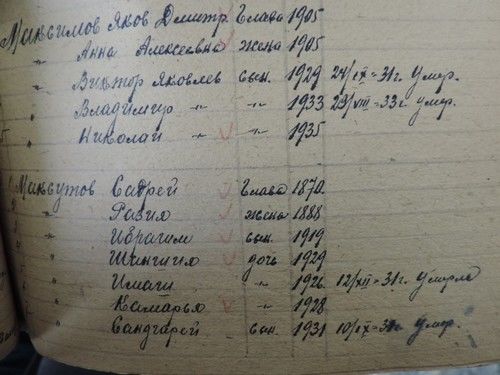 Максимов Яков Дмитр. Глава 1905
" Анна Алексеевна жена 1905
" Виктор Яковлев сын. 1929 24/IX=31г умер.
" Владимир " " 1933 23/VIII=33г. умер.
" Николай " " 1935
Максутов Садрей Глава 1870.
" Разия жена 1888
" Ибрагим сын. 1919
" дочь 1929
" " 1926 12/XII=31г. умерла
" Камарья " 1928
" Сандгарей сын. 1931 10/IX=31г. умер.